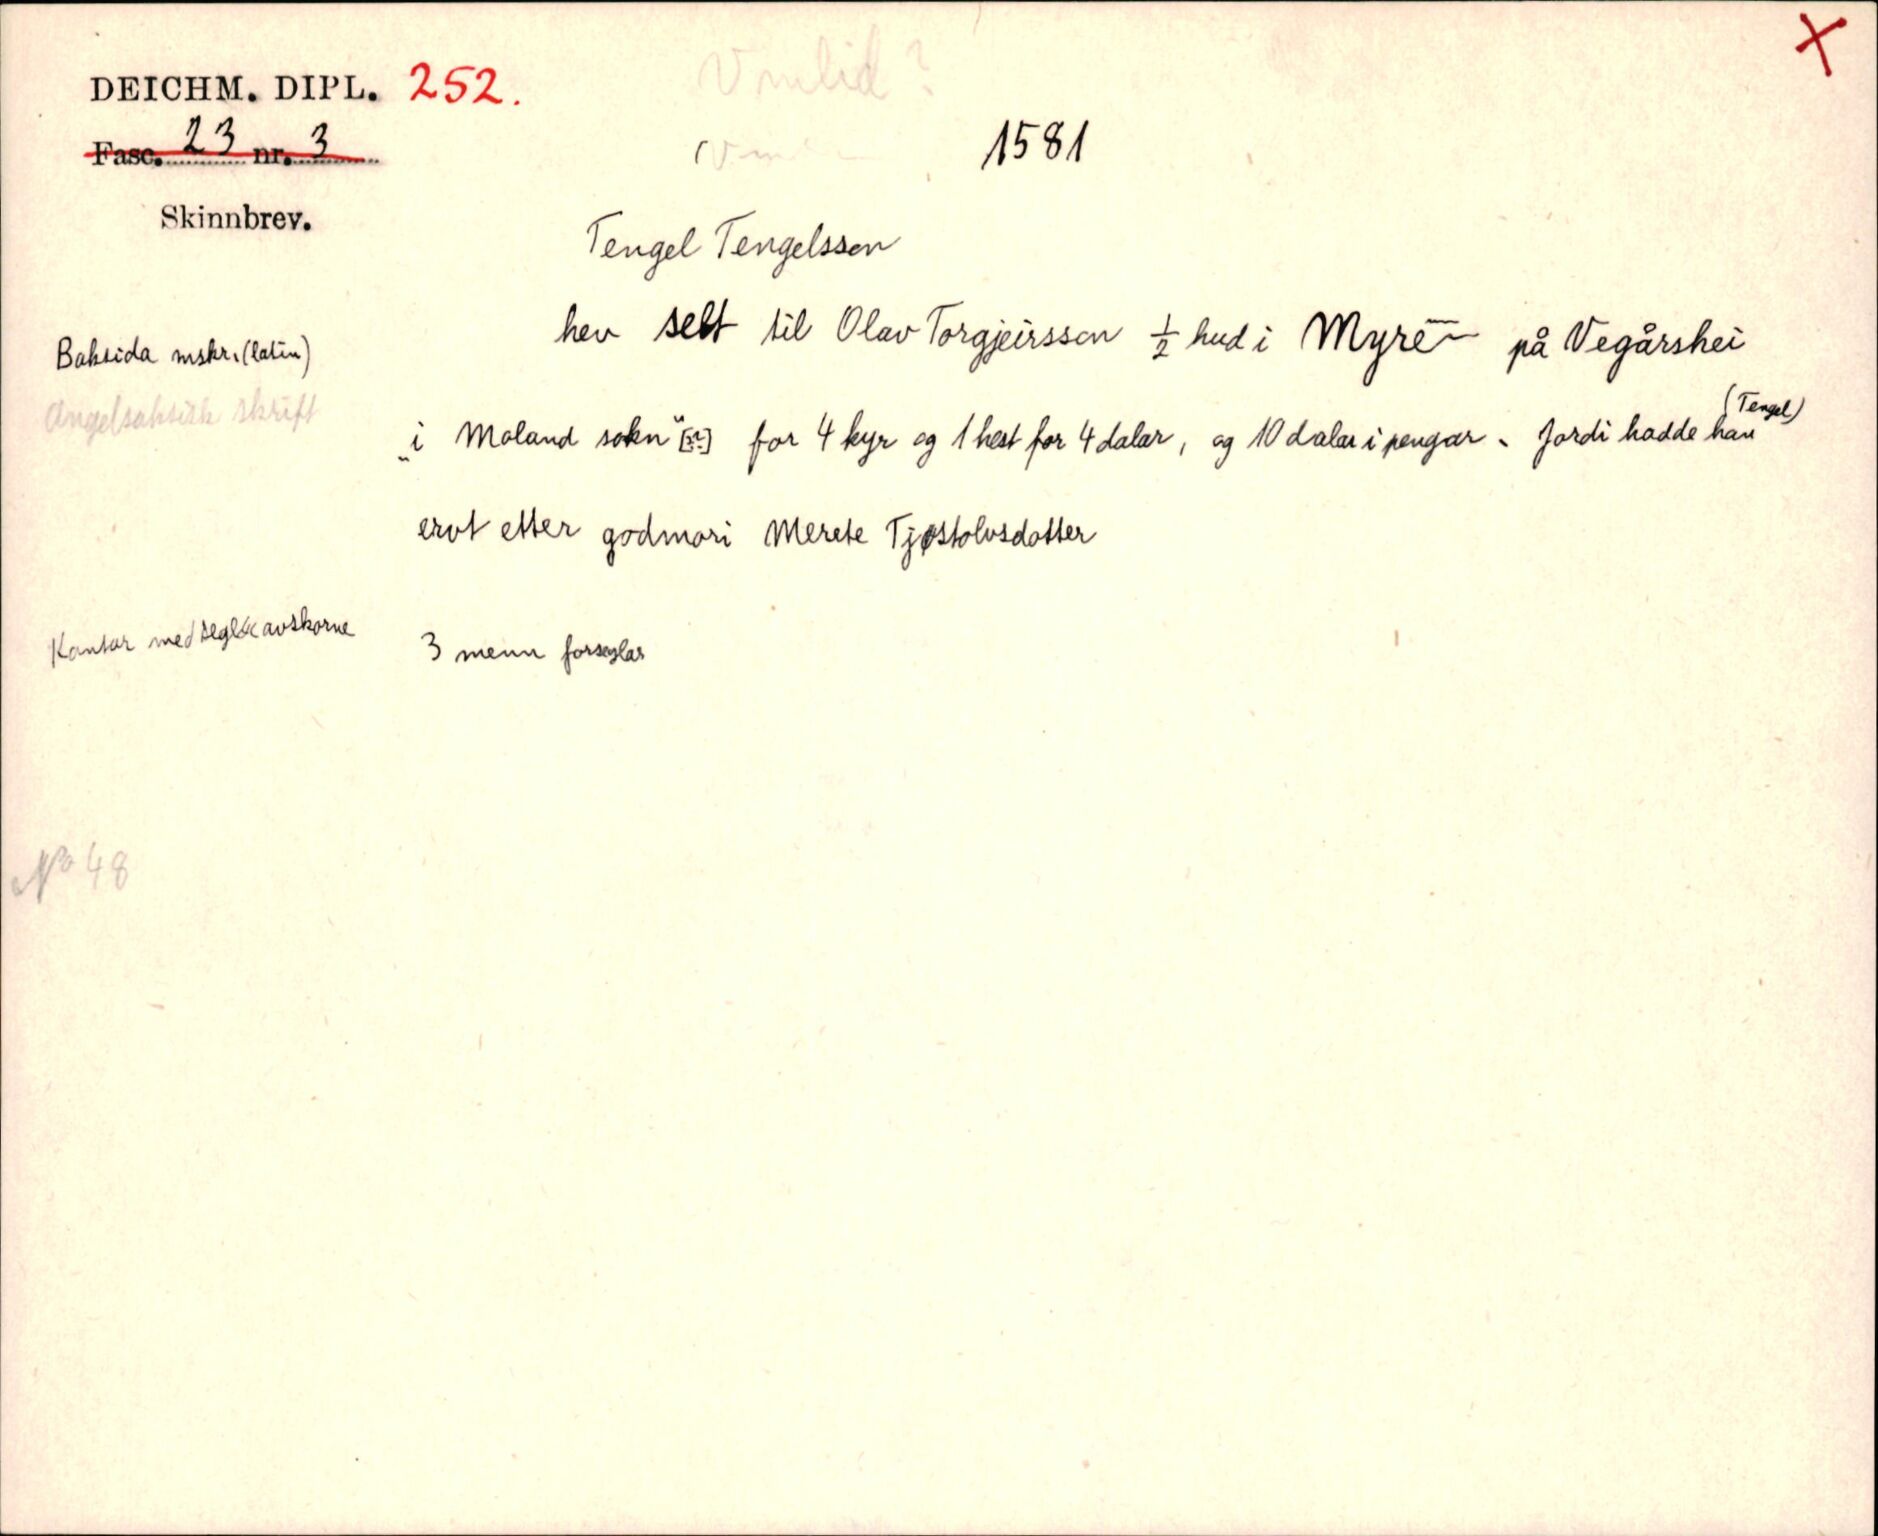 DEICHM. DIPL. 252.
Fasc. 23 nr. 3
1581
Skinnbrev.
Tengel Tengelsson
hev selt til Olav Torgjeirsson 1/2 hud i Myre på Vegårshei
Baksida mskr. (latin)
Angelsaksisk skrift
(Tengel)
„i Moland sokn" for 4 kyr og 1 hest for 4 dalar, og 10 dalar i pengar. Jordi hadde han
ervt etter godmori Merete Tjøstolvsdotter
Kantar med segl avskorne
3 menn forseglar
No 48